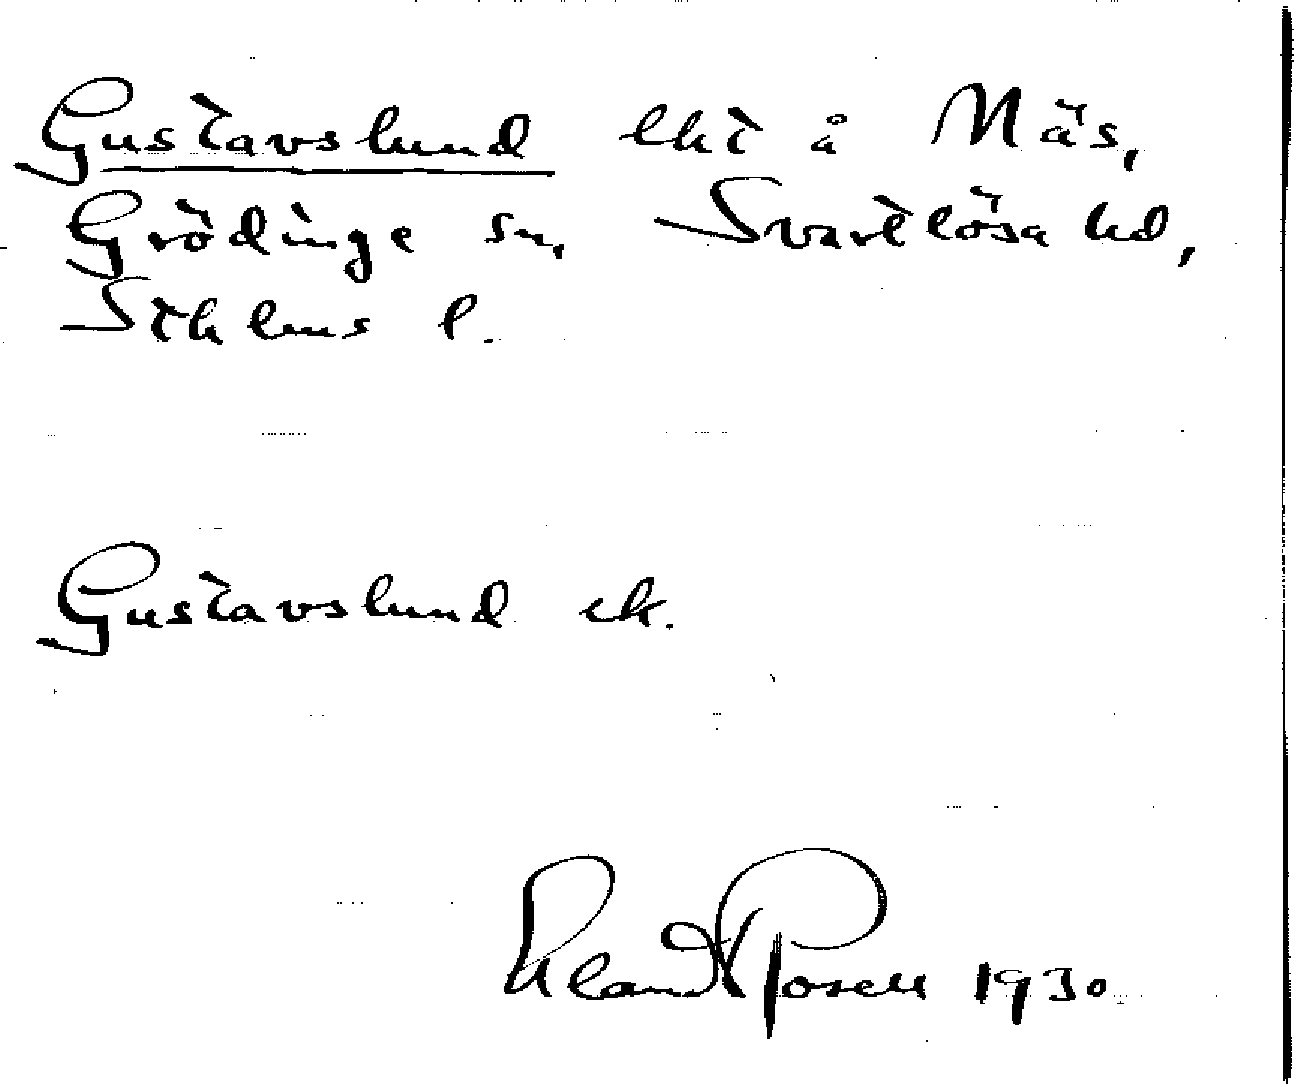 Gustavslund lht å Näs,
Grödinge sn, Svartlösa hd,
Sthlms l.
Gustavslund ek.
Rosell 1930